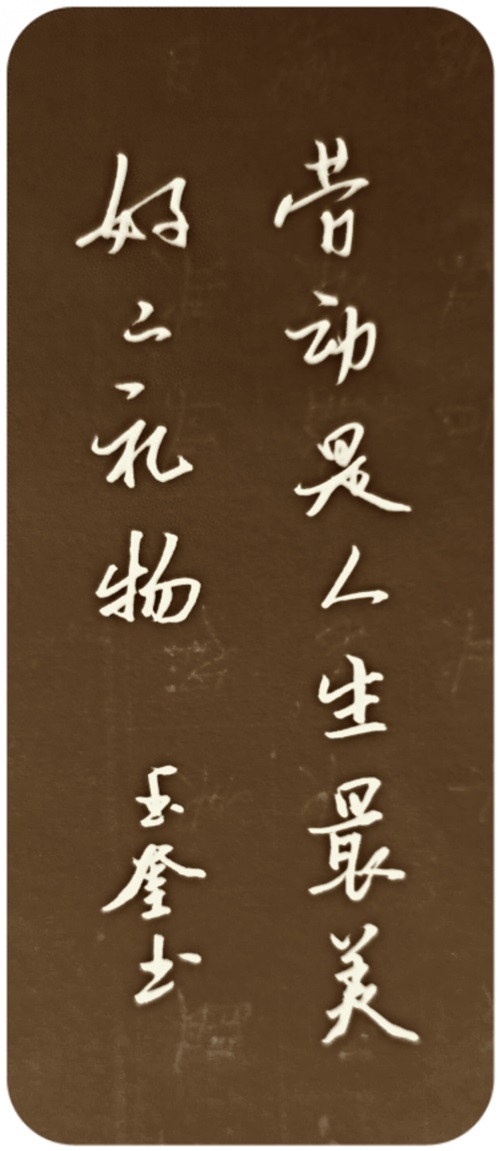 劳动是人生最美
好之礼物
玉奎书